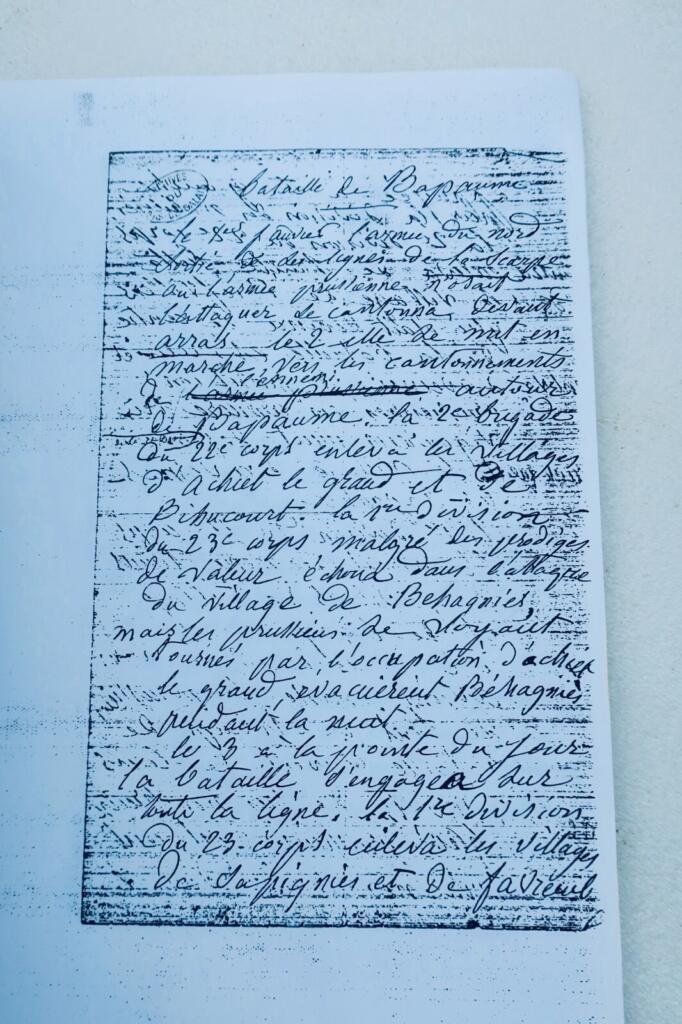 bataille de Bapaume
le 1er janvier l'armée du nord
sortie des lignes de la Scarpe
où l'armée prussienne n'osait
l'attaquer se cantonna devant
arras. le 2 elle se mit en
marche vers les cantonnements
de l'ennemi autour
de Bapaume. la 2e brigade
du 22e corps enleva les villages
d'achiet le grand et de
Bihucourt. la 1re division
du 23e corps malgré des prodiges
de valeur échoua dans l'attaque
du village de Behagnies,
mais les prussiens se voyant
tournés par l'occupation d'achiet
le grand, évacuèrent Béhagnies
pendant la nuit
le 3 à la pointe du jour
la bataille s'engagea sur
toute la ligne. la 1re division
du 23 corps enleva les villages
de Sapignies et de favreuil